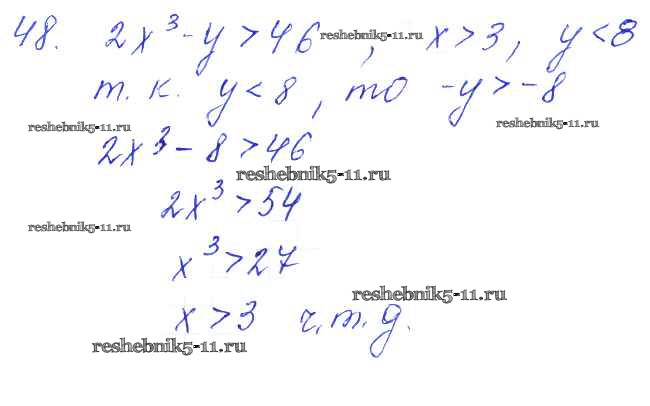 48. 2x³ - y > 46 reshebnik5-11.ru , x > 3, y < 8
т. к. y < 8, то -y > -8
reshebnik5-11.ru reshebnik5-11.ru
2x³ - 8 > 46
reshebnik5-11.ru
2x³ > 54
reshebnik5-11.ru
x³ > 27
reshebnik5-11.ru
x > 3 ч. т. д.
reshebnik5-11.ru